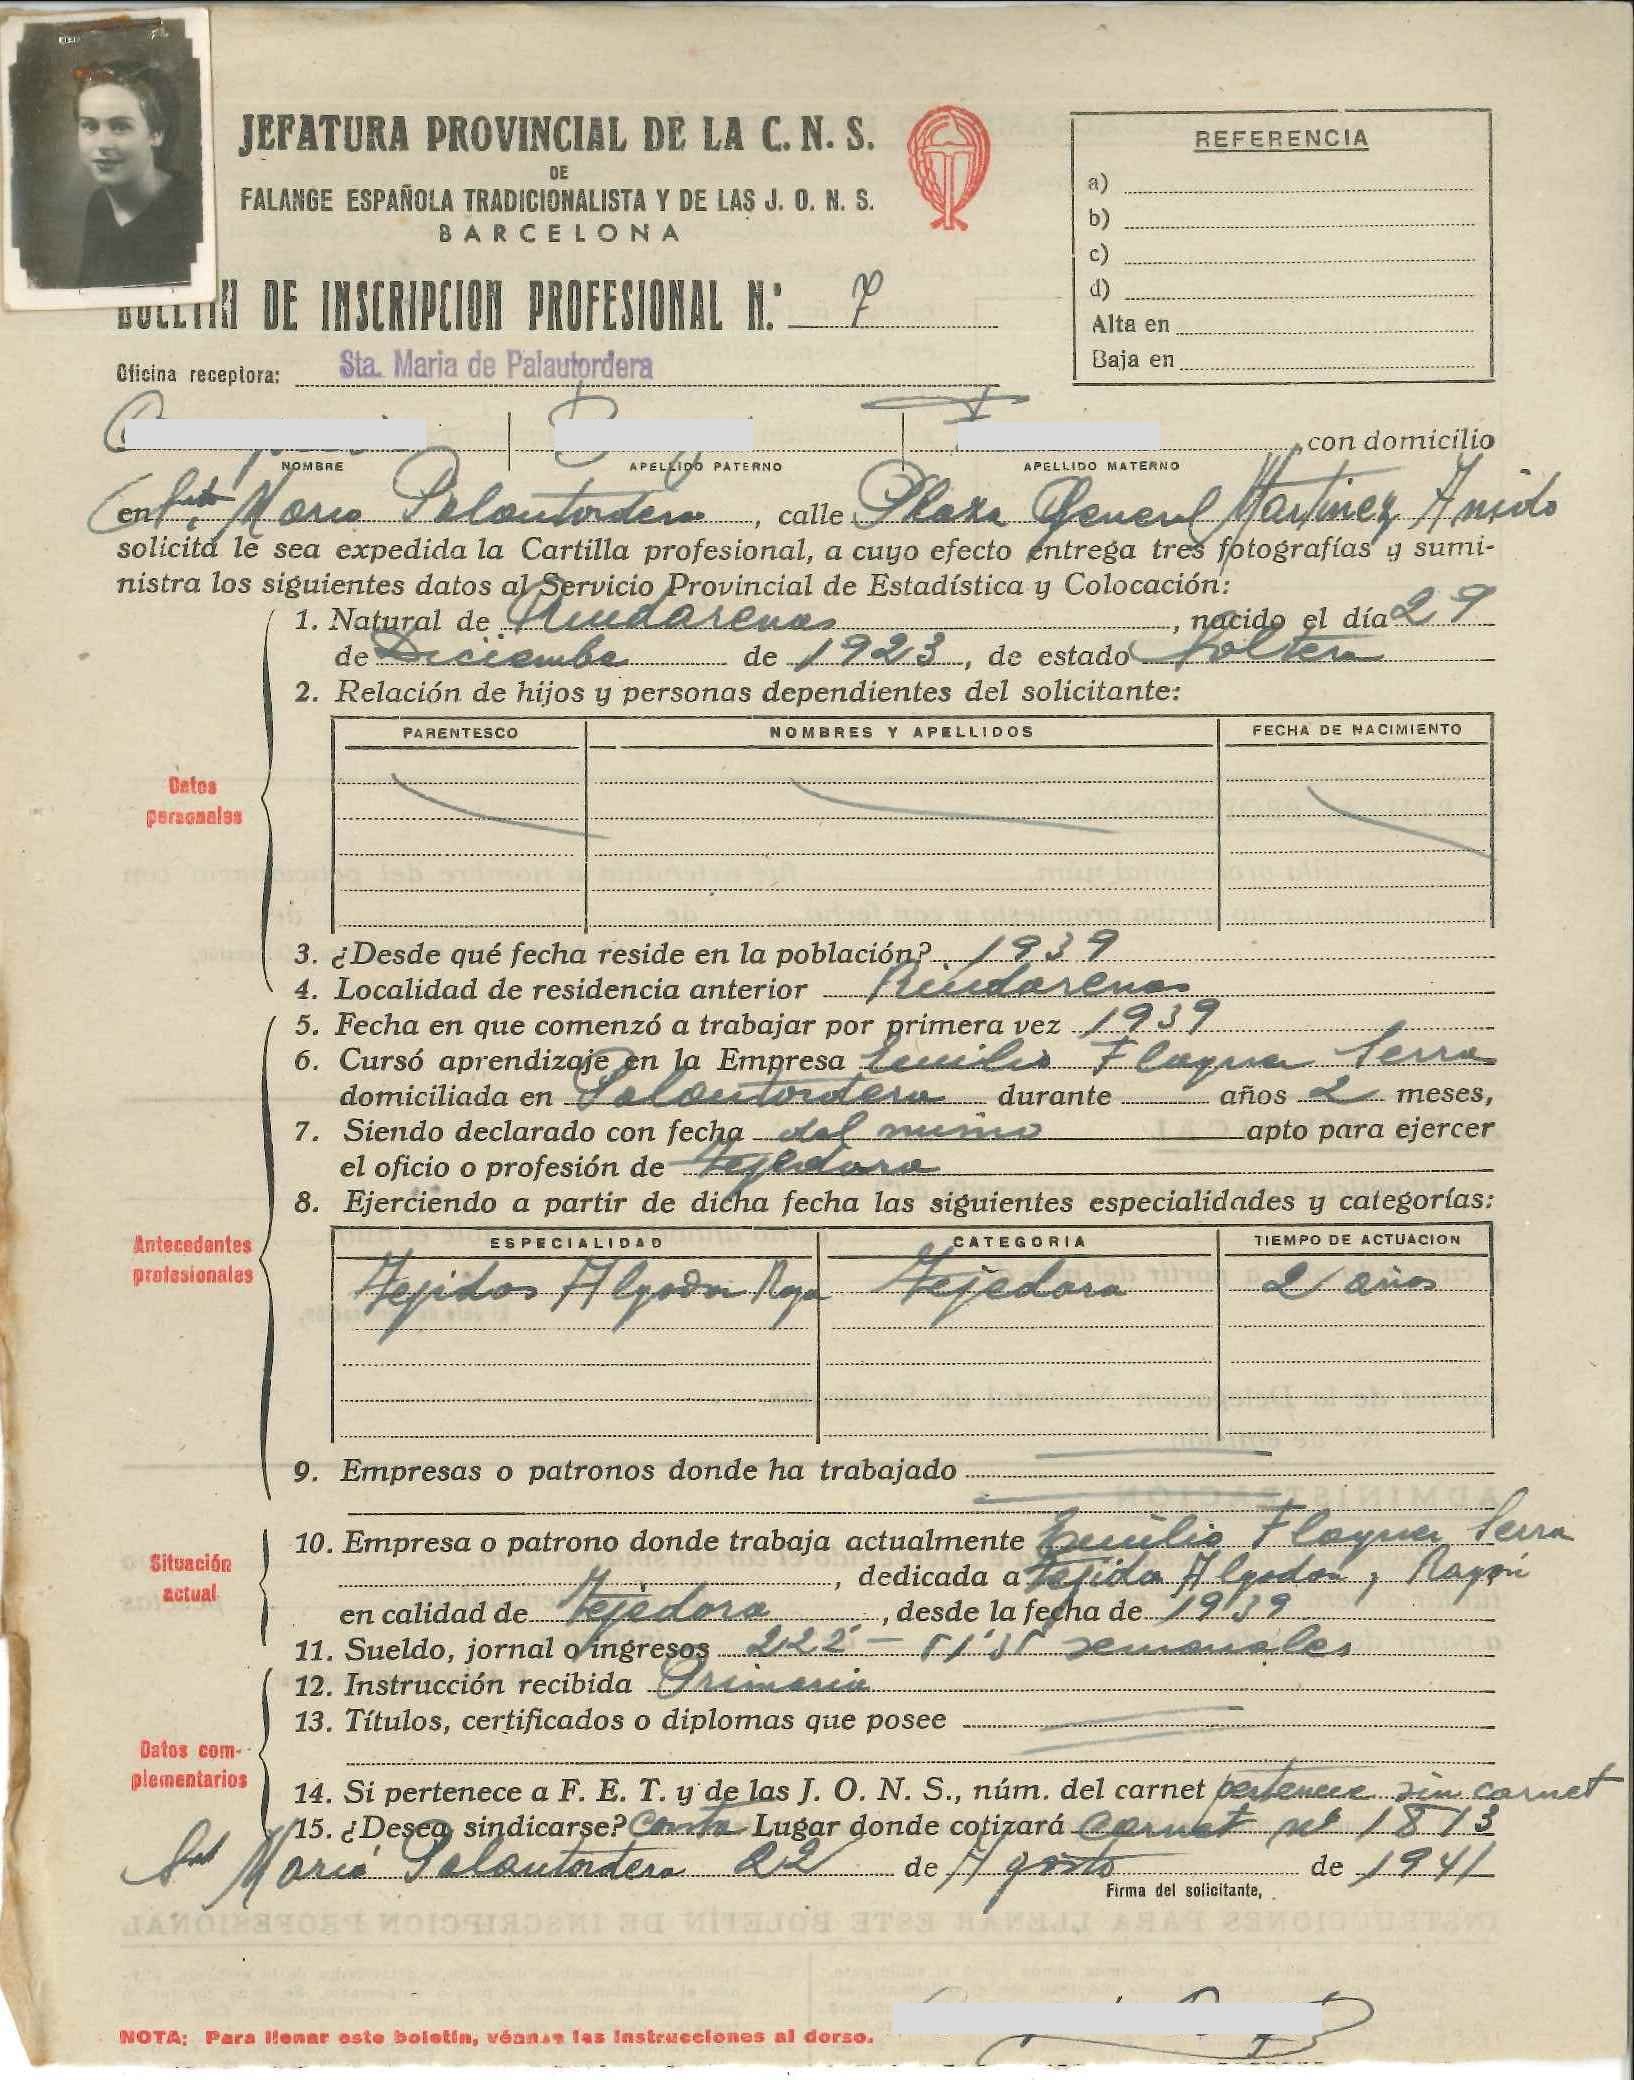 JEFATURA PROVINCIAL DE LA C. N. S.
DE
FALANGE ESPAÑOLA TRADICIONALISTA Y DE LAS J. O. N. S.
BARCELONA
REFERENCIA
a)
b)
c)
d)
Alta en
Baja en
BOLETIN DE INSCRIPCION PROFESIONAL N.º 7
Oficina receptora: Sta. Maria de Palautordera
, con domicilio
NOMBRE APELLIDO PATERNO APELLIDO MATERNO
en Sta Maria Palautordera, calle Plaza General Martinez Anido
solicita le sea expedida la Cartilla profesional, a cuyo efecto entrega tres fotografías y sumi-
nistra los siguientes datos al Servicio Provincial de Estadística y Colocación:
Datos
personales
1. Natural de Riudarenas, nacido el día 29
de Diciembe de 1923, de estado Soltera
2. Relación de hijos y personas dependientes del solicitante:
PARENTESCO NOMBRES Y APELLIDOS FECHA DE NACIMIENTO
3. ¿Desde qué fecha reside en la población? 1939
4. Localidad de residencia anterior Riudarenas
Antecedentes
profesionales
5. Fecha en que comenzó a trabajar por primera vez 1939
6. Cursó aprendizaje en la Empresa Emilio Flaquer Serra
domiciliada en Palautordera durante años 2 meses,
7. Siendo declarado con fecha del mismo apto para ejercer
el oficio o profesión de Tejedora
8. Ejerciendo a partir de dicha fecha las siguientes especialidades y categorías:
ESPECIALIDAD CATEGORIA TIEMPO DE ACTUACION
Tejidos Algodon Tejedora 2 años
9. Empresas o patronos donde ha trabajado
Situación
actual
10. Empresa o patrono donde trabaja actualmente Emilio Flaquer Serra
, dedicada a Tejidos Algodon, Rayon
en calidad de Tejedora, desde la fecha de 1939
11. Sueldo, jornal o ingresos semanales
Datos com-
plementarios
12. Instrucción recibida Primaria
13. Títulos, certificados o diplomas que posee
14. Si pertenece a F. E. T. y de las J. O. N. S., núm. del carnet pertenece sin carnet
15. ¿Desea sindicarse? Lugar donde cotizará carnet nº 1813
Sta Maria Palautordera 22 de Agosto de 1941
Firma del solicitante,
NOTA: Para llenar este boletín, véanse las instrucciones al dorso.